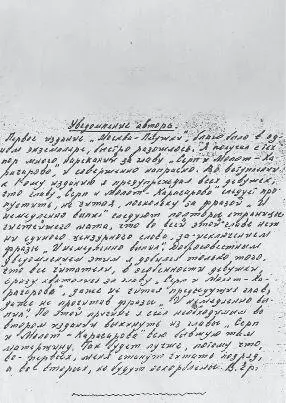 Уведомление автора.
Первое издание „Москва - Петушки", благо было в од-
ном экземпляре, быстро разошлось. Я получил с тех
пор много нареканий за главу „Серп и Молот - Ка-
рачарово", и совершенно напрасно. Во вступлении
к 1ому изданию я предупреждал всех девушек,
что главу „Серп и Молот - Карачарово" следует про-
пустить, не читая, поскольку за фразой „И
немедленно выпил" следуют полторы страницы
чистейшего мата, что во всей этой главе нет
ни единого цензурного слова, за исключением
фразы „И немедленно выпил". Добросовестным
уведомлением этим я добился только того,
что все читатели, в особенности девушки,
сразу хватались за главу „Серп и Молот - Ка-
рачарово", даже не читая предыдущих глав,
даже не прочитав фразы „И немедленно вы-
пил". По этой причине я счел необходимым во
втором издании выкинуть из главы „Серп
и Молот - Карачарово" всю бывшую там
матерщину. Так будет лучше, потому что,
во-первых, меня станут читать подряд,
а во вторых, не будут оскорблены. В. Ер.